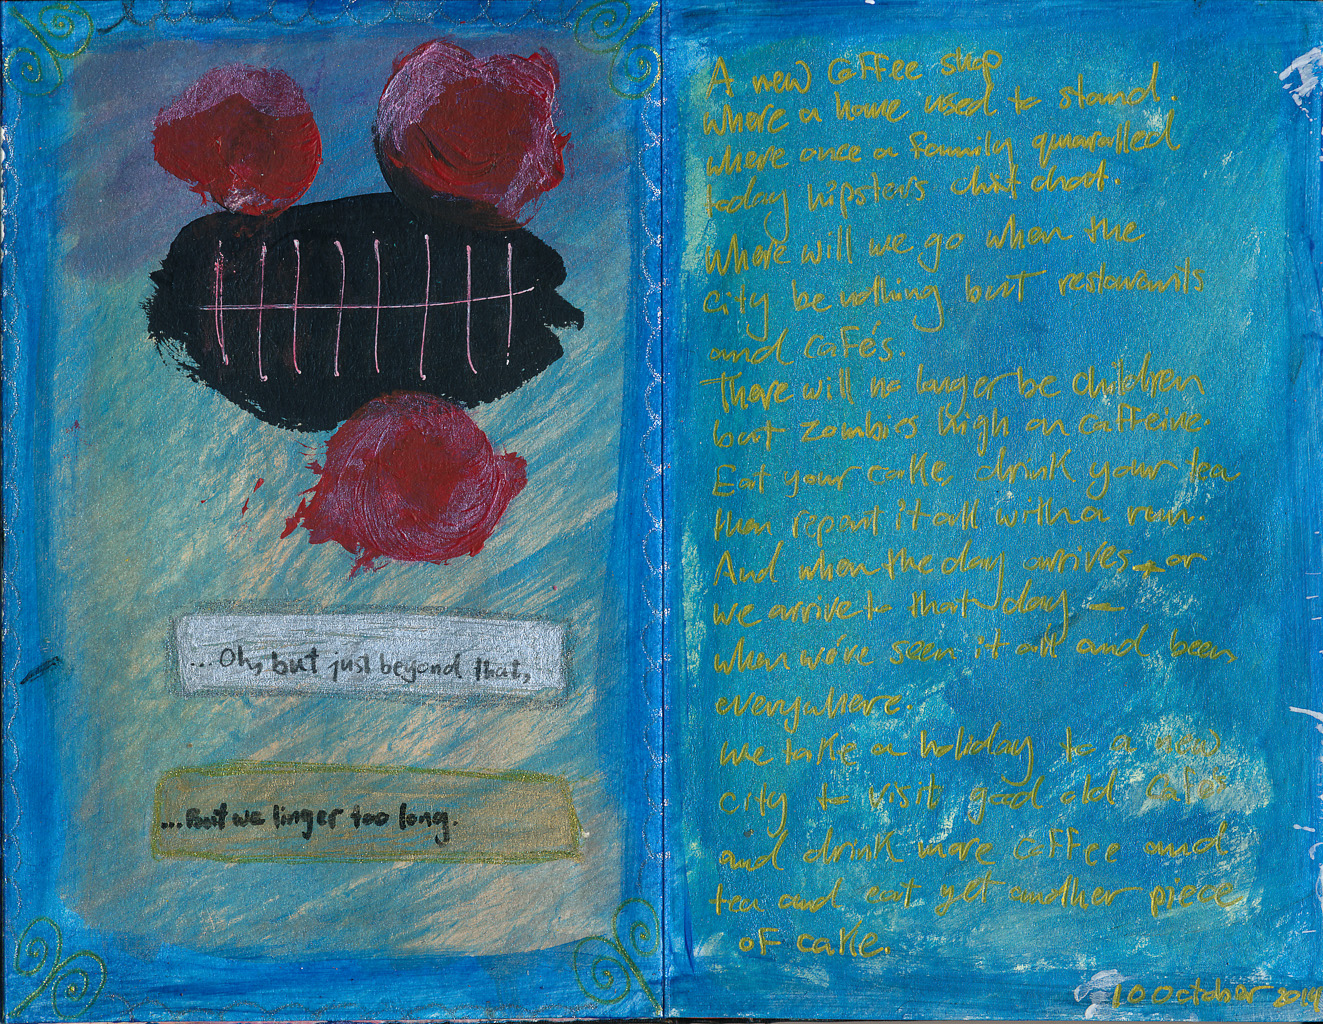 ...Oh, but just beyond that,
...But we linger too long.
A new coffee shop
where a home used to stand.
where once a family quaralled
today hipsters chit chat.
Where will we go when the
city be nothing but restaurants
and cafés.
There will no longer be children
but zombies high on caffeine.
Eat your cake, drink your tea
then repeat it all with a run.
And when the day arrives — or
we arrive to that day —
when we've seen it all and been
everywhere.
We take a holiday to a new
city to visit good old cafes
and drink more coffee and
tea and eat yet another piece
of cake.
10 October 2014